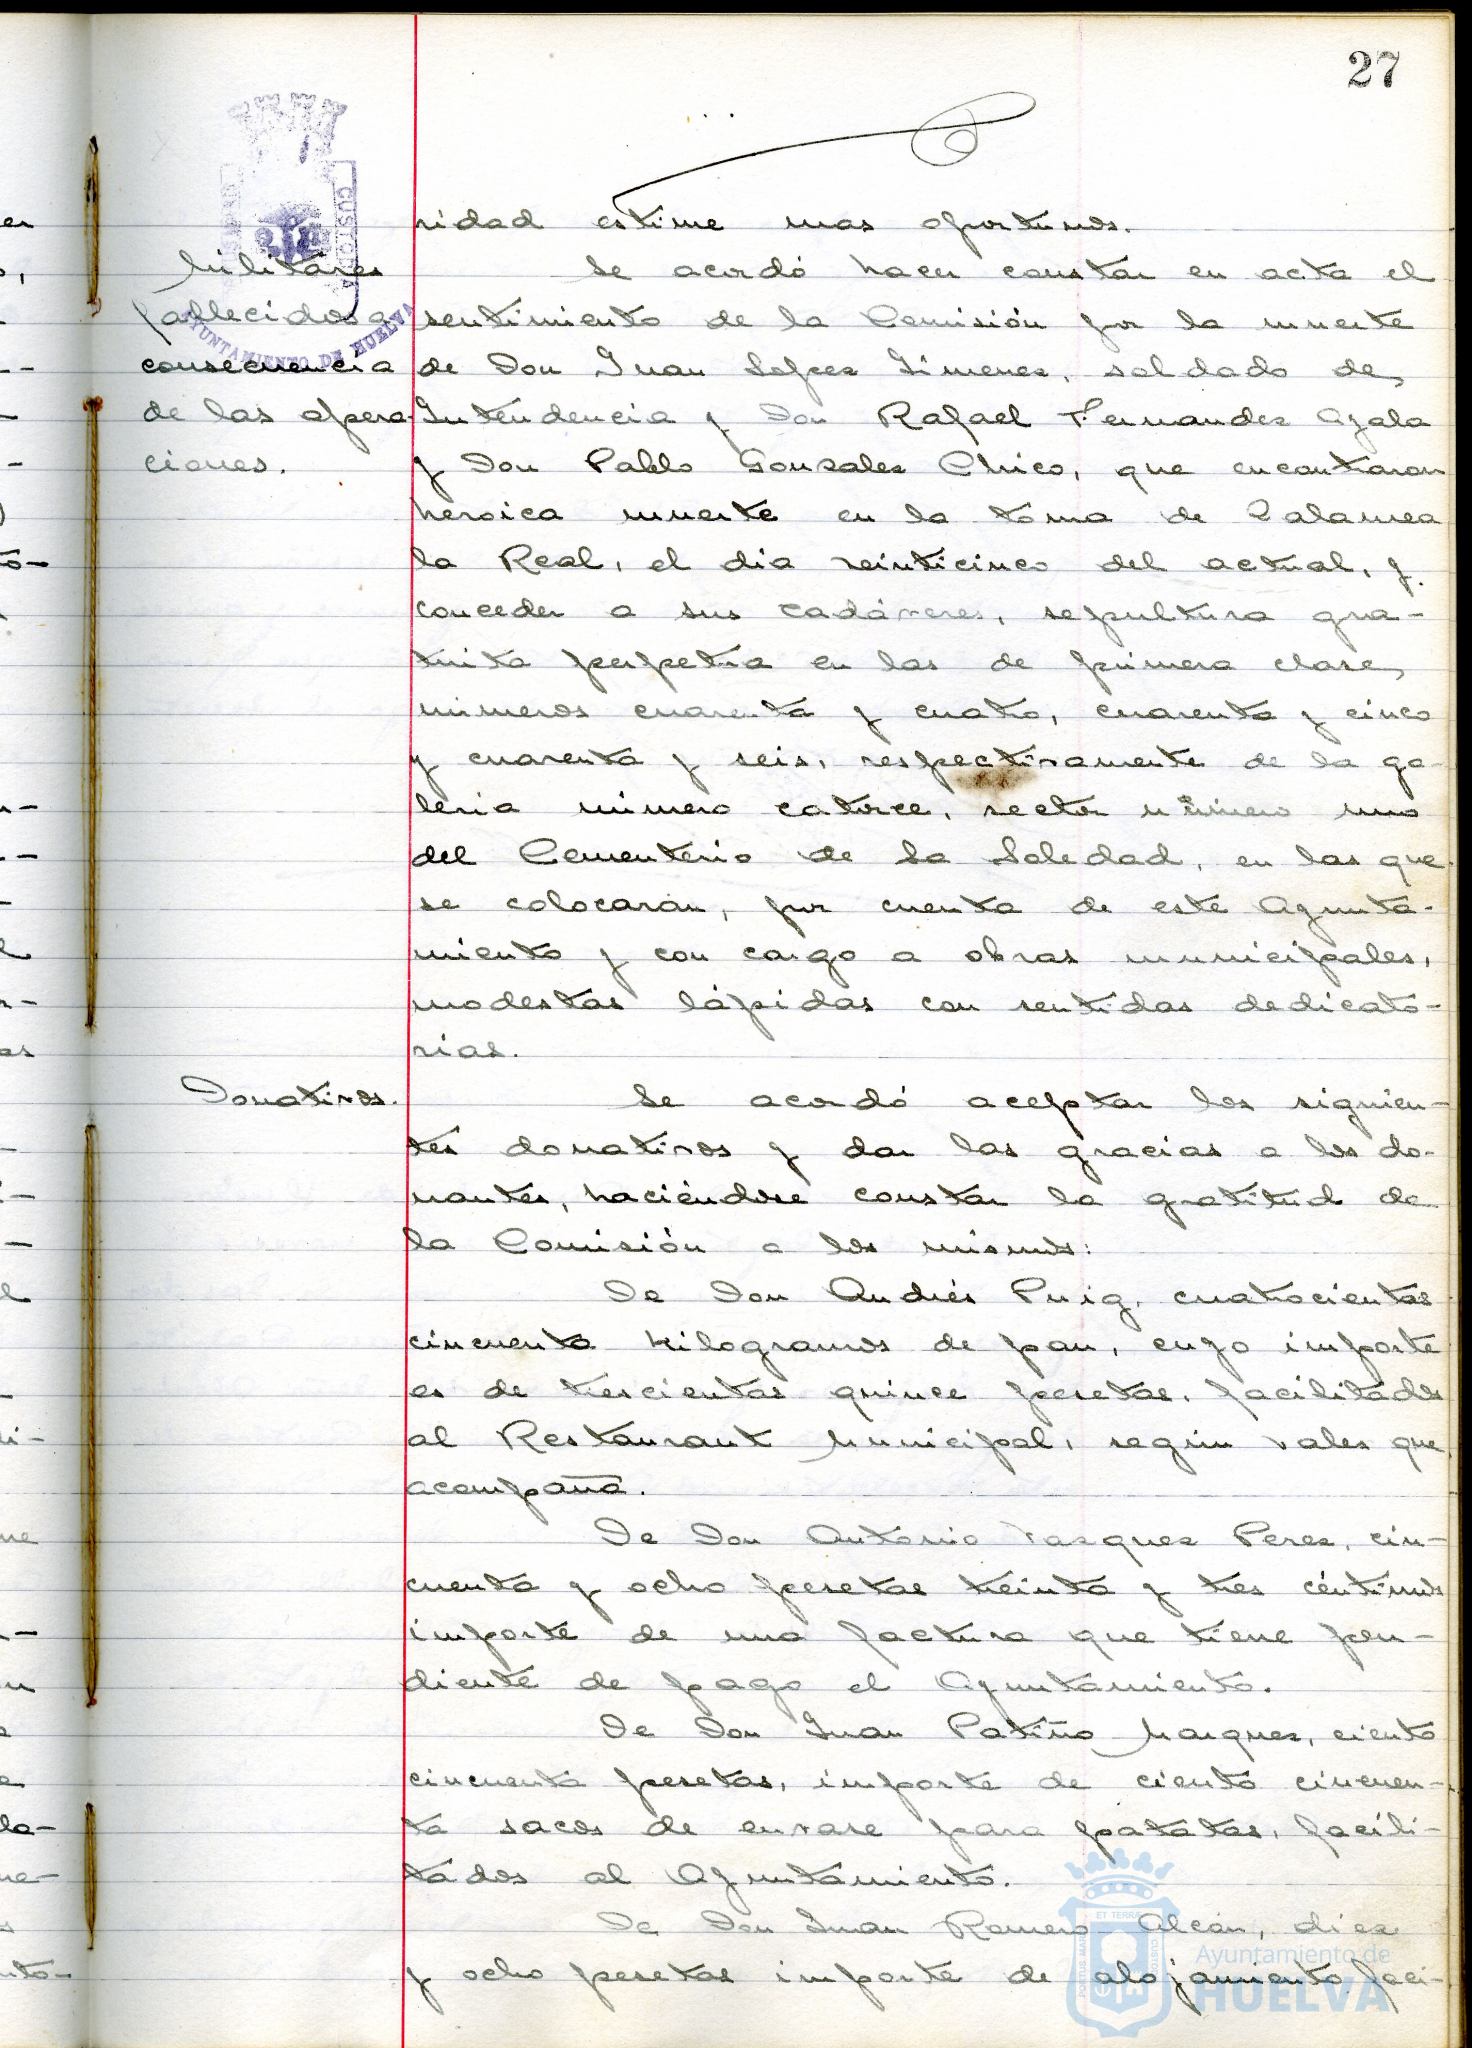 27
ridad estime mas oportunos.
Militares
fallecidos a
consecuencia
de las opera-
ciones.
Se acordó hacer constar en acta el
sentimiento de la Comisión por la muerte
de Don Juan Lopez Jimenez, soldado de
Intendencia y Don Rafael Fernandez Ayala
y Don Pablo Gonzalez Chico, que encontraron
heroica muerte en la toma de Zalamea
la Real, el dia veinticinco del actual, y
conceder a sus cadáveres, sepultura gra-
tuita perpetua en las de primera clase,
números cuarenta y cuatro, cuarenta y cinco
y cuarenta y seis, respectivamente de la ga-
leria número catorce, sector número uno
del Cementerio de La Soledad, en las que
se colocarán, por cuenta de este Ayunta-
miento y con cargo a obras municipales,
modestas lápidas con sentidas dedicato-
rias.
Donativos.
Se acordó aceptar los siguien-
tes donativos y dar las gracias a los do-
nantes, haciéndose constar la gratitud de
la Comisión a los mismos:
De Don Andrés Puig, cuatrocientos
cincuenta kilogramos de pan, cuyo importe
es de trescientas quince pesetas, facilitados
al Restaurant Municipal, según vales que
acompaña.
De Don Antonio Vazquez Perez, cin-
cuenta y ocho pesetas treinta y tres céntimos
importe de una factura que tiene pen-
diente de pago el Ayuntamiento.
De Don Juan Patiño Marquez, ciento
cincuenta pesetas, importe de ciento cincuen-
ta sacos de envase para patatas, facili-
tados al Ayuntamiento.
De Don Juan Romero Alcón, diez
y ocho pesetas importe de alojamiento faci-
AYUNTAMIENTO DE HUELVA
CUSTODIA
Ayuntamiento de
HUELVA